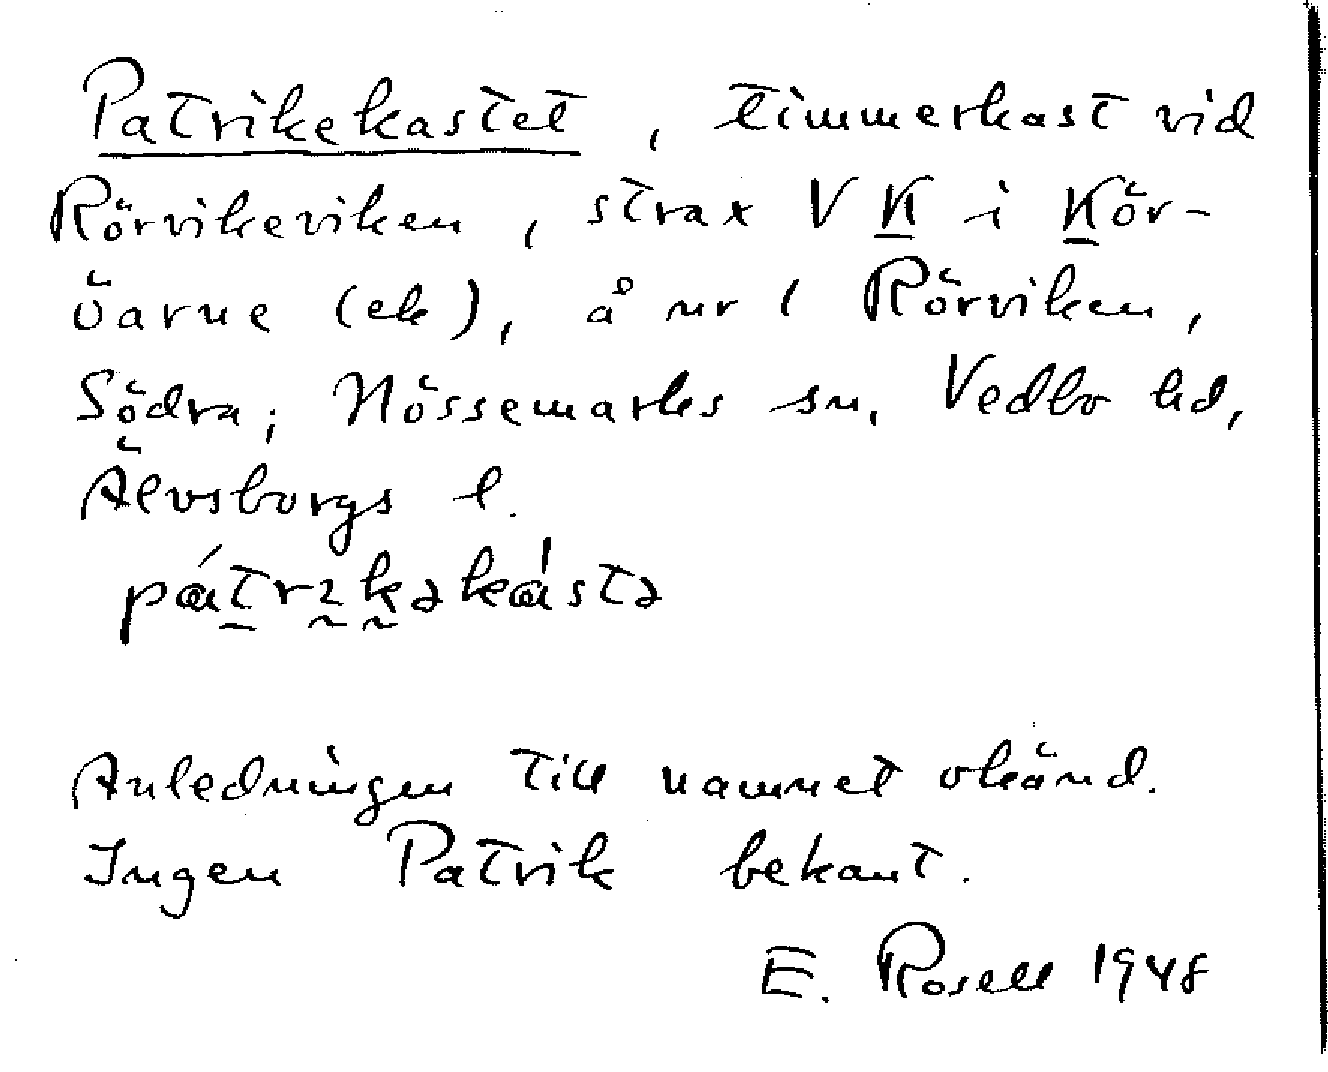 Patrikekastet, timmerkast vid
Rörvikeviken, strax V K i Kör-
öarne (ek), å nr 1 Rörviken,
Södra; Nössemarks sn, Vedbo hd,
Älvsborgs l.
pátrıkəkástə
Anledningen till namnet okänd.
Ingen Patrik bekant.
E. Rosell 1948